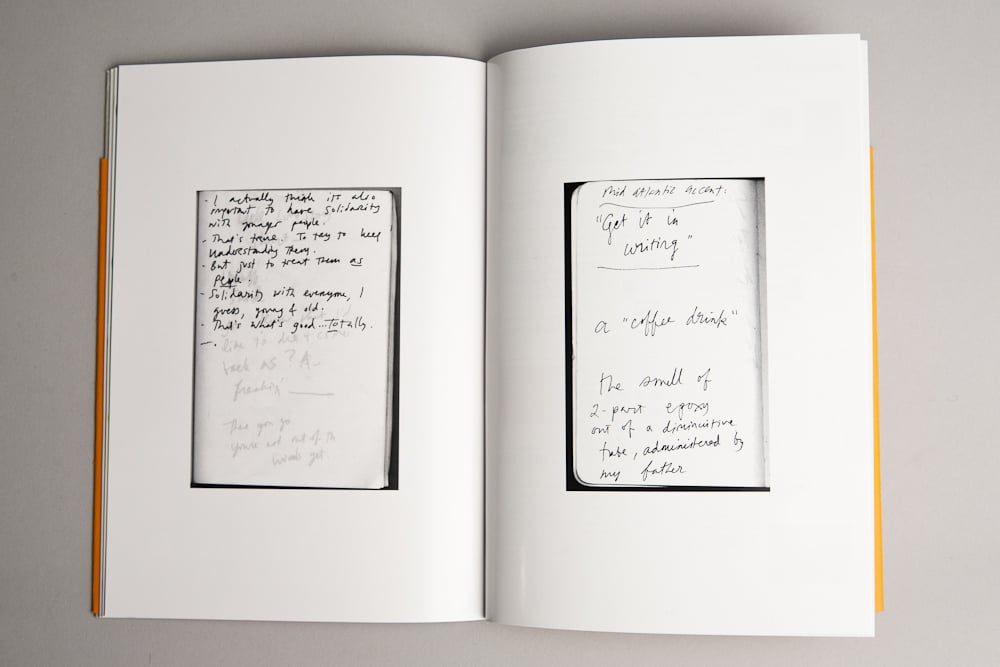 - I actually think it's also
important to have solidarity
with younger people.
- That's true. To try to keep
understanding them.
- But just to treat them as
people.
- Solidarity with everyone, I
guess, young & old.
- That's what's good... Totally.
—.
like to
back as ? A
freakin' ——
There you go
you're not out of th
woods yet.
Mid atlantic accent:
"Get it in
writing"
a "coffee drink"
the smell of
2-part epoxy
out of a diminuitive
tube, administered by
my father